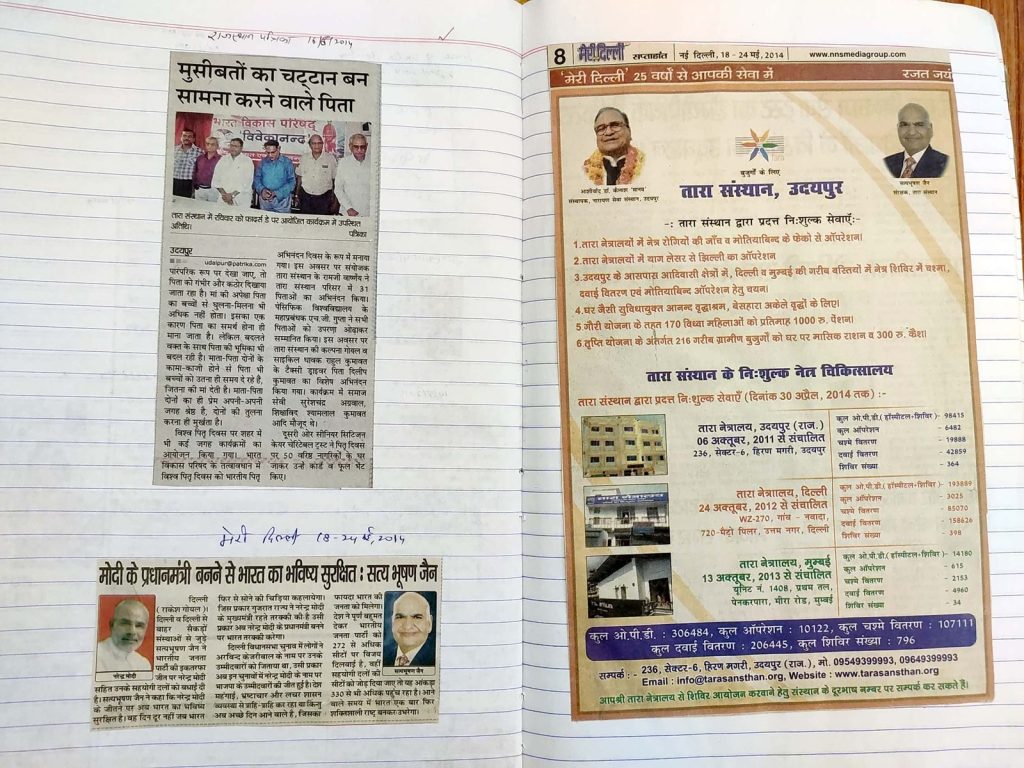 राजस्थान पत्रिका 2014
मुसीबतों का चट्टान बन
सामना करने वाले पिता
भारत विकास परिषद्
विवेकानन्द
तारा संस्थान में रविवार को फादर्स डे पर आयोजित कार्यक्रम में उपस्थित
अतिथि।
पत्रिका
उदयपुर
udaipur@patrika.com
पारंपरिक रूप पर देखा जाए, तो
पिता को गंभीर और कठोर दिखाया
जाता रहा है। मां की अपेक्षा पिता
का बच्चों से घुलना-मिलना भी
अधिक नहीं होता। इसका एक
कारण पिता का समर्थ होना ही
माना जाता है। लेकिन बदलते
वक्त के साथ पिता की भूमिका भी
बदल रही है। माता-पिता दोनों के
कामा-काजी होने से पिता भी
बच्चों को उतना ही समय दे रहे हैं,
जितना की मां देती है। माता-पिता
दोनों का ही प्रेम अपनी-अपनी
जगह श्रेष्ठ है, दोनों की तुलना
करना ही मुर्खता है।
विश्व पितृ दिवस पर शहर में
भी कई जगह कार्यक्रमों का
आयोजन किया गया। भारत
विकास परिषद के तत्वावधान में
विश्व पितृ दिवस को भारतीय पितृ
अभिनंदन दिवस के रूप में मनाया
गया। इस अवसर पर संयोजक
तारा संस्थान के रामजी वार्ष्णेय ने
तारा संस्थान परिसर में 31
पिताओं का अभिनंदन किया।
पेसिफिक विश्वविद्यालय के
महाप्रबंधक एच.जी. गुप्ता ने सभी
पिताओं को उपरणा ओढ़ाकर
सम्मानित किया। इस अवसर पर
तारा संस्थान की कल्पना गोयल व
साइकिल धावक राहुल कुमावत
के टैक्सी ड्राइवर पिता दिलीप
कुमावत का विशेष अभिनंदन
किया गया। कार्यक्रम में समाज
सेवी सुरेशचंद्र अग्रवाल,
शिक्षाविद श्यामलाल कुमावत
आदि मौजूद थे।
दूसरी ओर सीनियर सिटिजन
केयर चेरिटेबल ट्रस्ट ने पितृ दिवस
पर 50 वरिष्ठ नागरिकों के घर
जाकर उन्हें कार्ड व फूल भेंट
किए।
मेरी दिल्ली 18-24 मई, 2014
मोदी के प्रधानमंत्री बनने से भारत का भविष्य सुरक्षित : सत्य भूषण जैन
नरेन्द्र मोदी
दिल्ली
(राकेश गोयल )।
दिल्ली व दिल्ली से
बाहर सैकड़ों
संस्थाओं से जुड़े
सत्यभूषण जैन ने
भारतीय जनता
पार्टी की इकतरफा
जीत पर नरेन्द्र मोदी
सहित उनके सहयोगी दलों को बधाई दी
है। सत्यभूषण जैन ने कहा कि नरेन्द्र मोदी
के जीतने पर अब भारत का भविष्य
सुरक्षित है। वह दिन दूर नहीं जब भारत
फिर से सोने की चिड़िया कहलायेगा।
जिस प्रकार गुजरात राज्य ने नरेन्द्र मोदी
के मुख्यमंत्री रहते तरक्की की है उसी
प्रकार अब नरेन्द्र मोदी के प्रधानमंत्री बनने
पर भारत तरक्की करेगा।
दिल्ली विधानसभा चुनाव में लोगों ने
अरविन्द केजरीवाल के नाम पर उनके
उम्मीदवारों को जिताया था, उसी प्रकार
अब इन चुनावों में नरेन्द्र मोदी के नाम पर
भाजपा के उम्मीदवारों की जीत हुई है। देश
महंगाई, भ्रष्टाचार और लचर शासन
व्यवस्था से त्राहि-त्राहि कर रहा था किन्तु
अब अच्छे दिन आने वाले हैं, जिसका
फायदा भारत की
जनता को मिलेगा।
देश ने पूर्ण बहुमत
देकर भारतीय
जनता पार्टी को
272 से अधिक
सीटों पर विजय
दिलवाई है, वहीं
सहयोगी दलों की
सीटों को जोड़ दिया जाए तो यह आंकड़ा
330 से भी अधिक पहुंच रहा है। आने
वाले समय में भारत एक बार फिर
शक्तिशाली राष्ट्र बनकर उभरेगा।
सत्यभूषण जैन
8 मेरी दिल्ली साप्ताहांत नई दिल्ली, 18 - 24 मई, 2014 www.nnsmediagroup.com
'मेरी दिल्ली' 25 वर्षों से आपकी सेवा में रजत जय
आशीर्वाद डॉ. कैलाश 'मानव'
संस्थापक, नारायण सेवा संस्थान, उदयपुर
tara
सत्यभूषण जैन
संरक्षक, तारा संस्थान
बुजुर्गों के लिए
तारा संस्थान, उदयपुर
-: तारा संस्थान द्वारा प्रदत्त नि:शुल्क सेवाएँ:-
1.तारा नेत्रालयों में नेत्र रोगियों की जाँच व मोतियाबिन्द के फेको से ऑपरेशन।
2.तारा नेत्रालयों में याग लेसर से झिल्ली का ऑपरेशन
3.उदयपुर के आसपास आदिवासी क्षेत्रों में, दिल्ली व मुम्बई की गरीब बस्तियों में नेत्र शिविर में चश्मा,
दवाई वितरण एवं मोतियाबिन्द ऑपरेशन हेतु चयन।
4.घर जैसी सुविधायुक्त आनन्द वृद्धाश्रम, बेसहारा अकेले वृद्धों के लिए।
5.गौरी योजना के तहत 170 विधवा महिलाओं को प्रतिमाह 1000 रु. पेंशन।
6.तृप्ति योजना के अंतर्गत 216 गरीब ग्रामीण बुजुर्गों को घर पर मासिक राशन व 300 रु. कैश।
तारा संस्थान के नि:शुल्क नेत्र चिकित्सालय
तारा संस्थान द्वारा प्रदत्त नि:शुल्क सेवाएँ (दिनांक 30 अप्रैल, 2014 तक) :-
तारा नेत्रालय, उदयपुर (राज.)
06 अक्टूबर, 2011 से संचालित
236, सेक्टर-6, हिरण मगरी, उदयपुर
कुल ओ.पी.डी.( हॉस्पीटल+शिविर )- 98415
कुल ऑपरेशन - 6482
चश्मे वितरण - 19888
दवाई वितरण - 42859
शिविर संख्या - 364
तारा नेत्राालय, दिल्ली
24 अक्टूबर, 2012 से संचालित
WZ-270, गांव - नवादा,
720-मैट्रो पिलर, उत्तम नगर, दिल्ली
कुल ओ.पी.डी.( हॉस्पीटल+शिविर )- 193889
कुल ऑपरेशन - 3025
चश्मे वितरण - 85070
दवाई वितरण - 158626
शिविर संख्या - 398
तारा नेत्राालय, मुम्बई
13 अक्टूबर, 2013 से संचालित
यूनिट नं. 1408, प्रथम तल,
पेनकरपारा, मीरा रोड, मुम्बई
कुल ओ.पी.डी.(हॉस्पीटल+शिविर)- 14180
कुल ऑपरेशन - 615
चश्मे वितरण - 2153
दवाई वितरण - 4960
शिविर संख्या - 34
कुल ओ.पी.डी. : 306484, कुल ऑपरेशन : 10122, कुल चश्मे वितरण : 107111
कुल दवाई वितरण : 206445, कुल शिविर संख्या : 796
सम्पर्क :- 236, सेक्टर-6, हिरण मगरी, उदयपुर (राज.), मो. 09549399993, 09649399993
Email : info@tarasansthan.org, Website : www.tarasansthan.org
आपश्री तारा नेत्रालय से शिविर आयोजन करवाने हेतु संस्थान के दूरभाष नम्बर पर सम्पर्क कर सकते हैं।